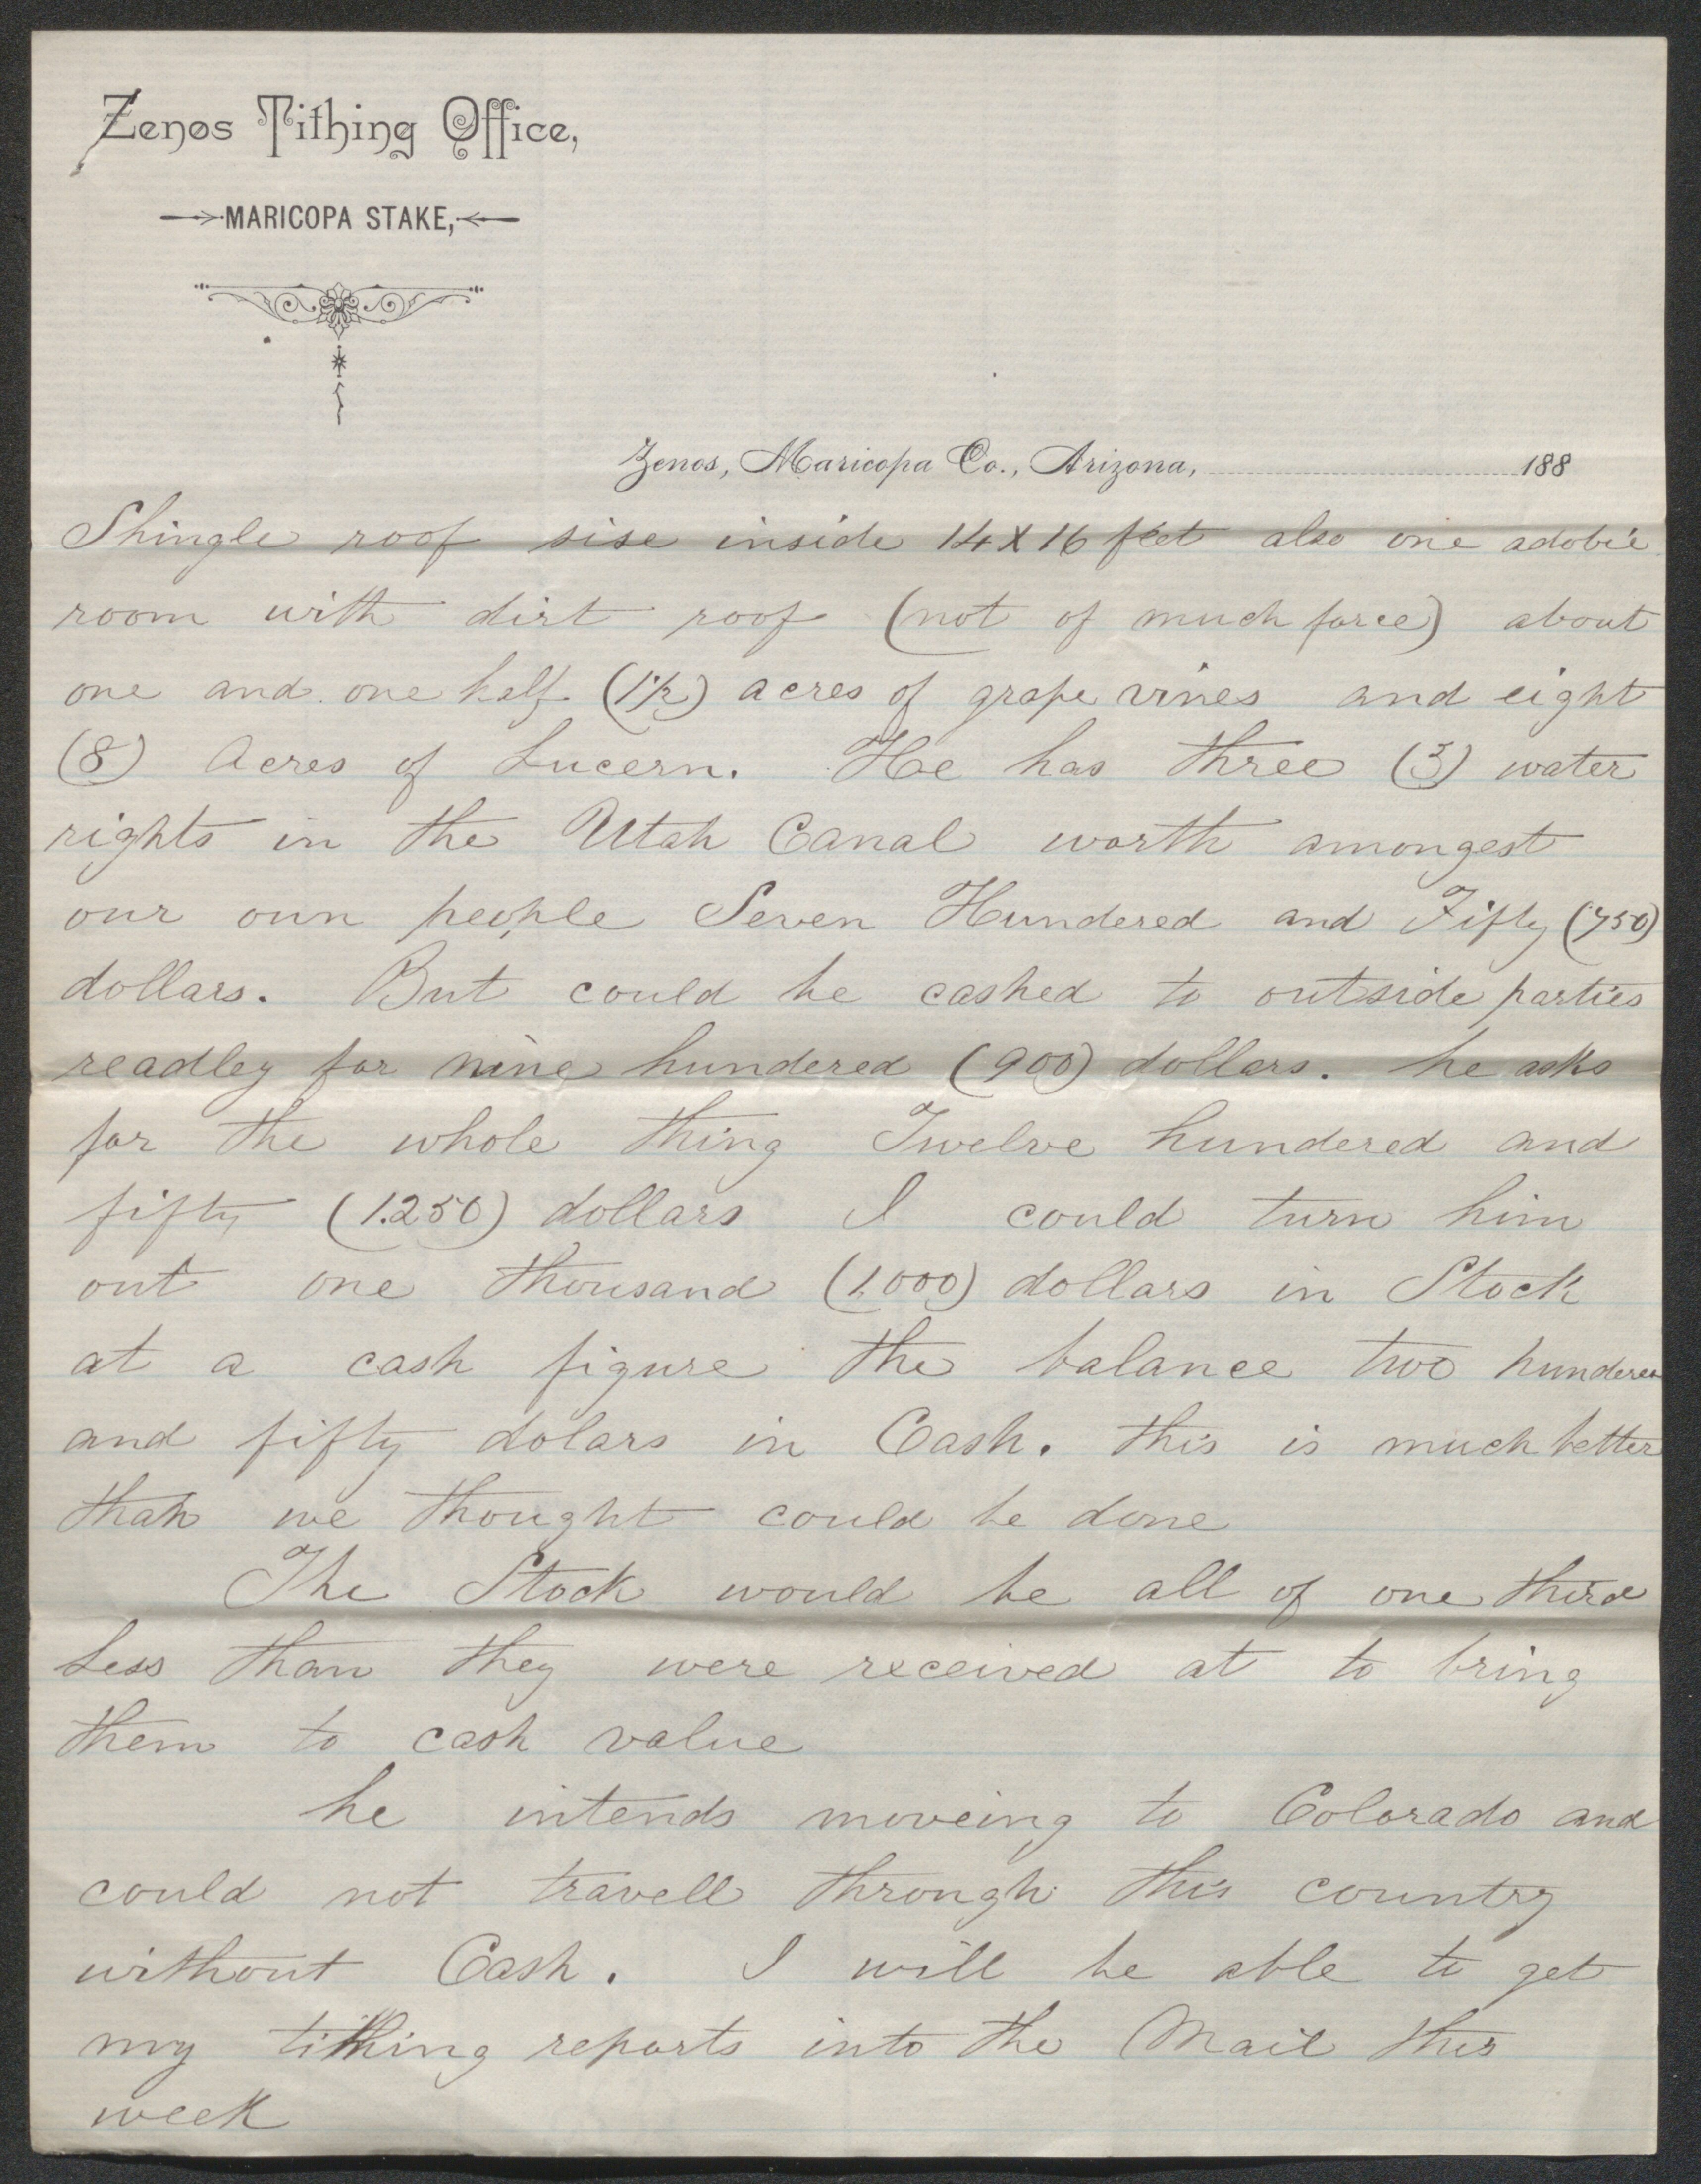 Zenos Tithing Office,
MARICOPA STAKE,
Zenos, Maricopa Co., Arizona, 188
Shingle roof sise inside 14 X 16 feet also one adobie
room with dirt roof (not of much force) about
one and one half (1 1/2) acres of grape vines and eight
(8) Acres of Lucern. He has three (3) water
rights in the Utah Canal worth amongest
our own people Seven Hundered and Fifty (750)
dollars. But could be cashed to outside parties
readley for nine hundered (900) dollars. he asks
for the whole thing Twelve hundered and
fifty (1.250) dollars I could turn him
out one thousand (1,000) dollars in Stock
at a cash figure the balance two hundered
and fifty dolars in Cash. this is much better
than we thought could be done
The Stock would be all of one third
Less than they were received at to bring
them to cash value
he intends moveing to Colorado and
could not travell through this country
without Cash. I will be able to get
my tithing reports into the Mail this
week